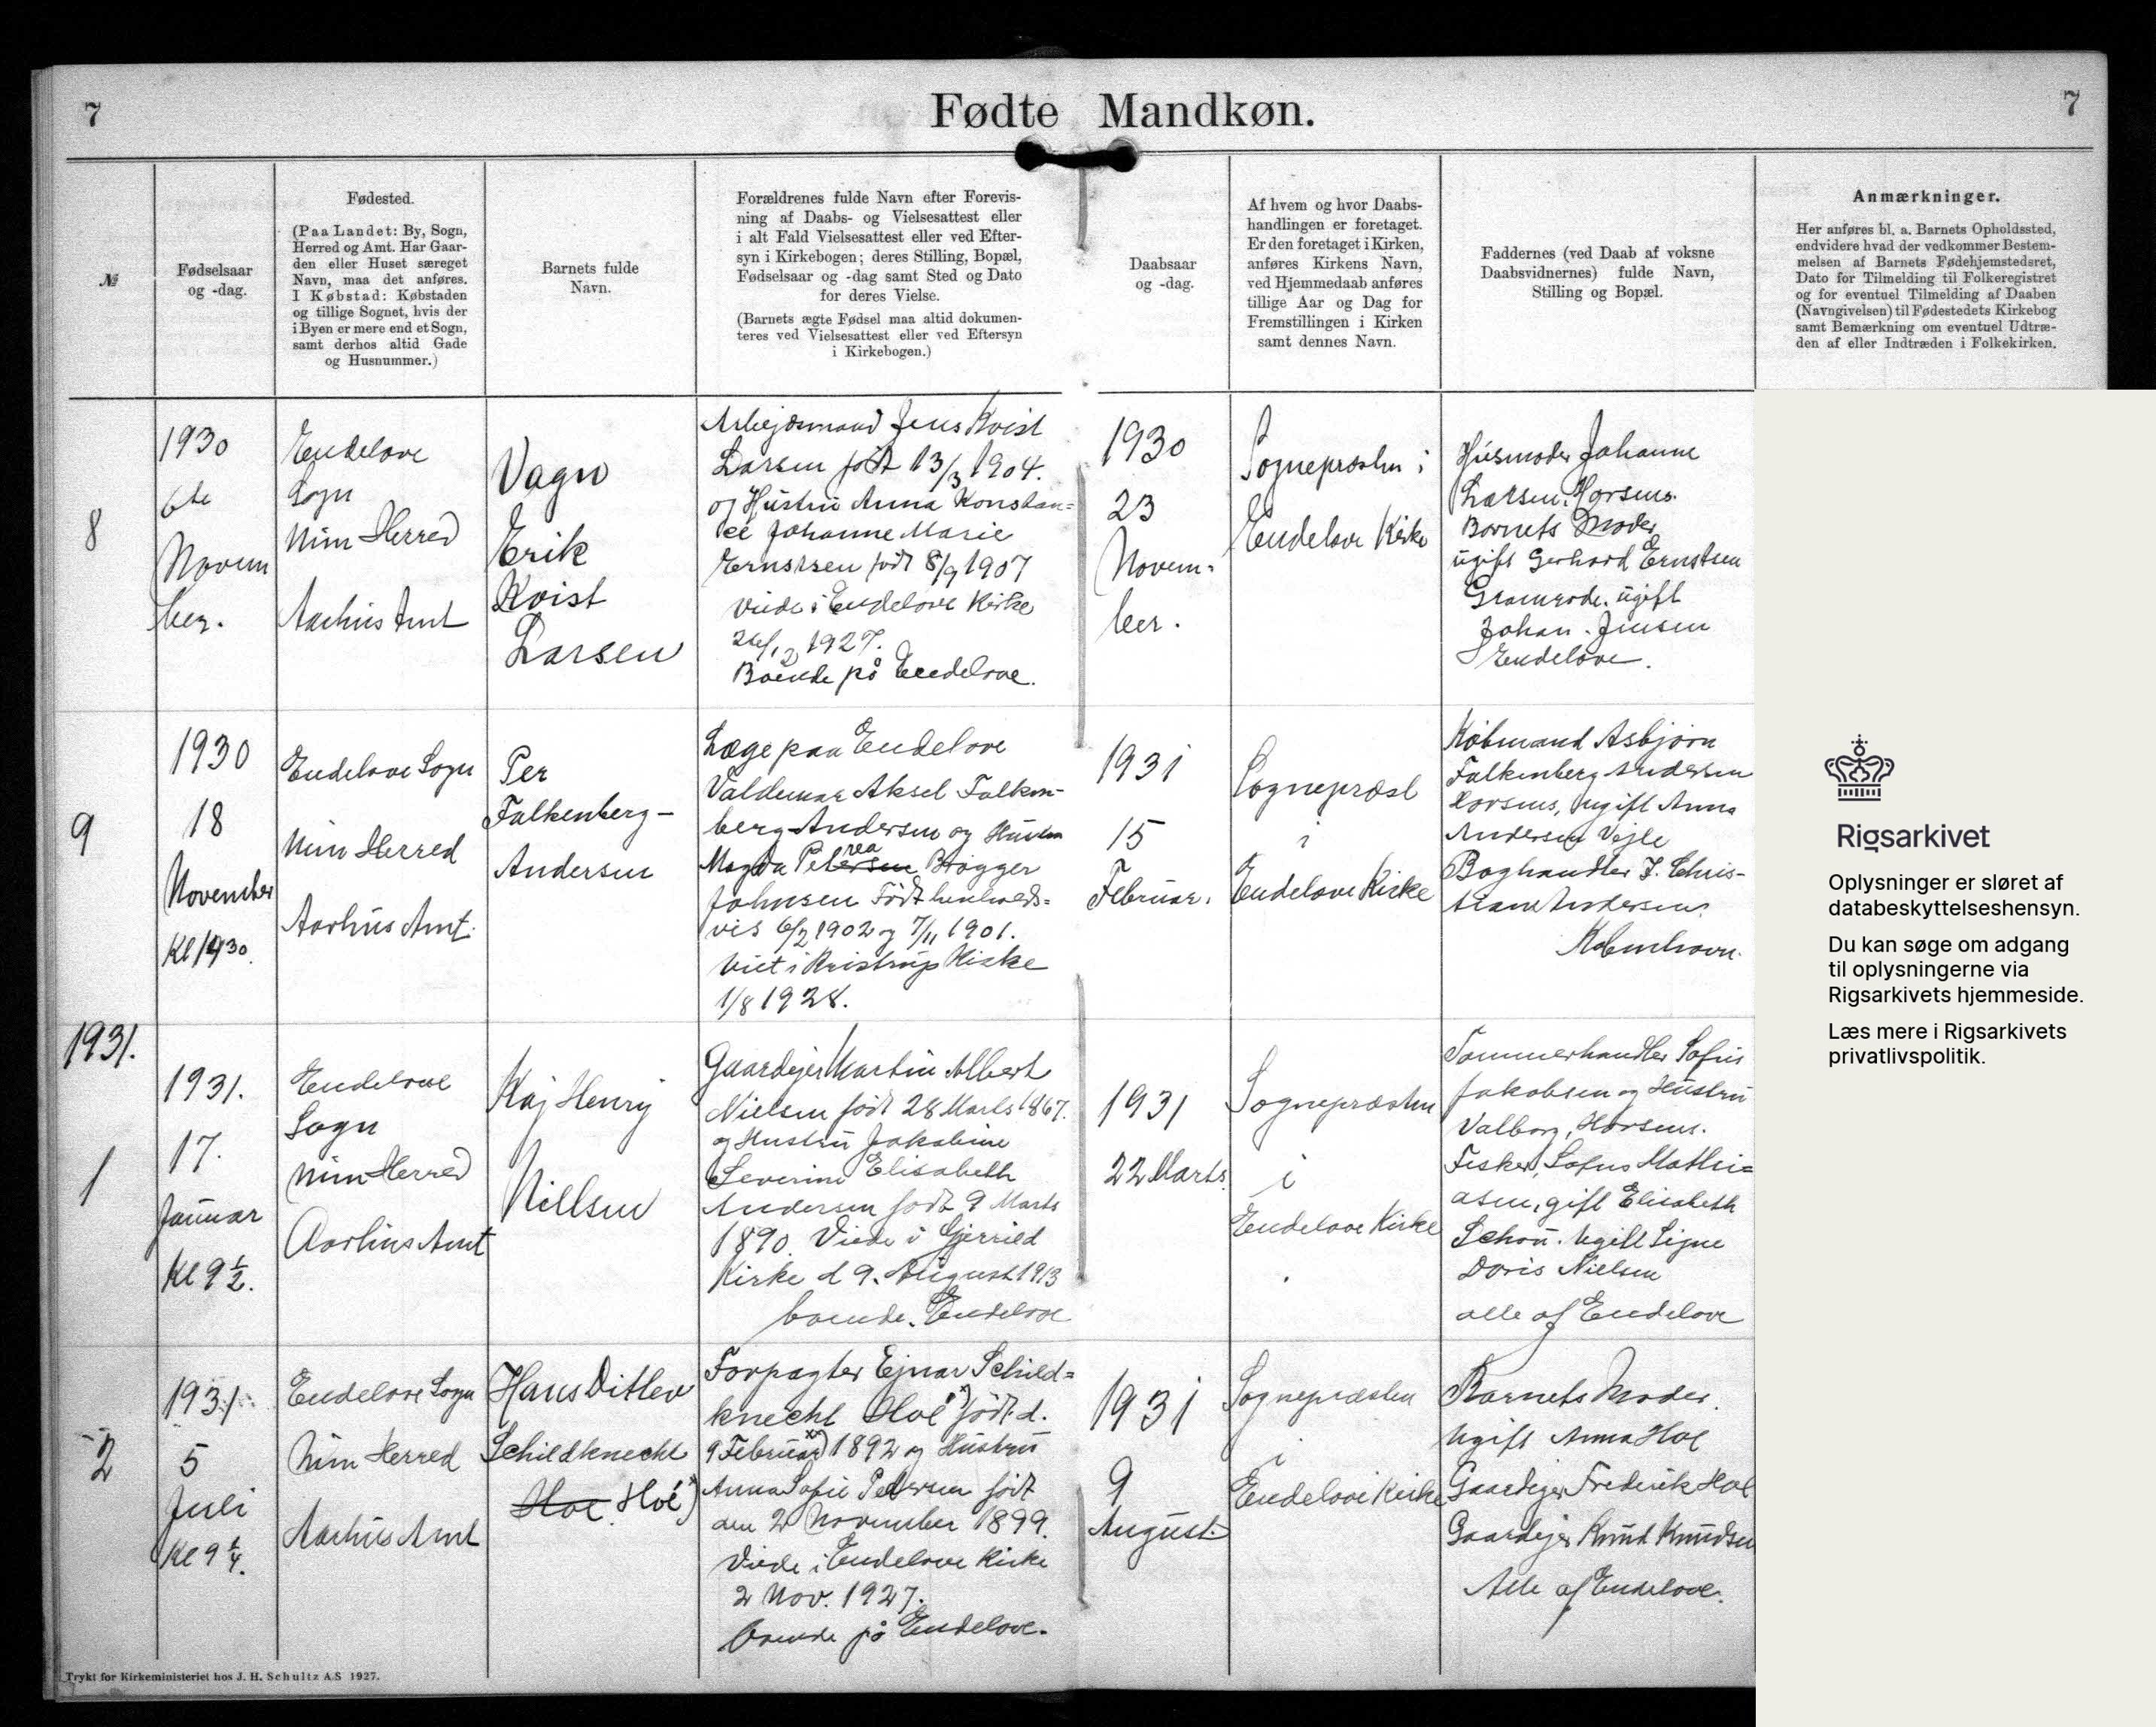 7
Fødte Mandkøn.
7
№
Fødselsaar
og -dag.
Fødested.
(Paa Landet: By, Sogn,
Herred og Amt. Har Gaar-
den eller Huset særeget
Navn, maa det anføres.
I Købstad: Købstaden
og tillige Sognet, hvis der
i Byen er mere end et Sogn,
samt derhos altid Gade
og Husnummer.)
Barnets fulde
Navn.
Forældrenes fulde Navn efter Forevis-
ning af Daabs- og Vielsesattest eller
i alt Fald Vielsesattest eller ved Efter-
syn i Kirkebogen; deres Stilling, Bopæl,
Fødselsaar og -dag samt Sted og Dato
for deres Vielse.
(Barnets ægte Fødsel maa altid dokumen-
teres ved Vielsesattest eller ved Eftersyn
i Kirkebogen.)
Daabsaar
og -dag.
Af hvem og hvor Daabs-
handlingen er foretaget.
Er den foretaget i Kirken,
anføres Kirkens Navn,
ved Hjemmedaab anføres
tillige Aar og Dag for
Fremstillingen i Kirken
samt dennes Navn.
Faddernes (ved Daab af voksne
Daabsvidnernes) fulde Navn,
Stilling og Bopæl.
Anmærkninger.
Her anføres bl. a. Barnets Opholdssted,
endvidere hvad der vedkommer Bestem-
melsen af Barnets Fødehjemstedsret,
Dato for Tilmelding til Folkeregistret
og for eventuel Tilmelding af Daaben
(Navngivelsen) til Fødestedets Kirkebog
samt Bemærkning om eventuel Udtræ-
den af eller Indtræden i Folkekirken.
8
1930
6te
Novem
ber.
Endelave
Sogn
Nim Herred
Aarhus Amt
Vagn
Erik
Kvist
Larsen
Arbejdsmand Jens Kvist
Larsen født 13/3 1904.
og Hustru Anna Konstan=
ce Johanne Marie
Ernstsen født 8/9 1907
viede i Endelave Kirke
26/12 1927.
Boende på Endelave.
1930
23
Novem-
ber.
Sognepræsten i
Endelave Kirke
Husmoder Johanne
Larsen, Horsens.
Barnets Moder
ugift Gerhard Ernstsen
Gramrode. ugift
Johan. Jensen
Endelave.
9
1930
18
November
Kl 1930.
Endelave Sogn
Nim Herred
Aarhus Amt.
Per
Falkenberg-
Andersen
Læge paa Endelave
Valdemar Aksel Falken-
berg-Andersen og Hustru
Magda Petrea Brøgger
Johnsen Født henholds=
vis 6/2 1902 og 7/11 1901.
Viet i Kristrup Kirke
1/8 1928.
1931
15
Februar.
Sognepræst
i
Endelave Kirke
Købmand Asbjørn
Falkenberg Andersen
Horsens, ugift Anna
Andersen Vejle
Boghandler J. Chris-
tian Andersen
København.
1931.
1
1931.
17.
Januar
Kl 9 ½.
Endelave
Sogn
Nim Herred
Aarhus Amt
Kaj Henry
Nielsen
Gaardejer Martin Albert
Nielsen født 28 Marts 1867.
og Hustru Jakobine
Severine Elisabeth
Andersen født 9 Marts
1890. Viede i Gjerrild
Kirke d 9. August 1913
boende. Endelave
1931
22 Marts.
Sognepræsten
i
Endelave Kirke
Tømmerhandler Sofus
Jakobsen og Hustru
Valborg, Horsens.
Fisker, Sofus Mathi=
asen, gift Elisabeth
Schou. Ugift Signe
Doris Nielsen
alle af Endelave
2
1931.
5
Juli
Kl 9 ¼.
Endelave Sogn
Nim Herred
Aarhus Amt
Hans Ditlev
Schildknecht
Hoe Hoë x)
Forpagter Ejnar Schild=
knecht Hoë x) født d.
9 Februar xx) 1892 og Hustru
Anna Sofie Petersen født
den 2 November 1899.
Viede i Endelave Kirke
2 Nov. 1927.
boende på Endelave.
1931
9
August.
Sognepræsten
i
Endelave Kirke
Barnets Moder.
Ugift Anna Hoe
Gaardejer Frederik Hoe
Gaardejer Knud Knudsen
Alle af Endelave.
Trykt for Kirkeministeriet hos J. H. Schultz A.S 1927.
Rigsarkivet
Oplysninger er sløret af
databeskyttelseshensyn.
Du kan søge om adgang
til oplysningerne via
Rigsarkivets hjemmeside.
Læs mere i Rigsarkivets
privatlivspolitik.